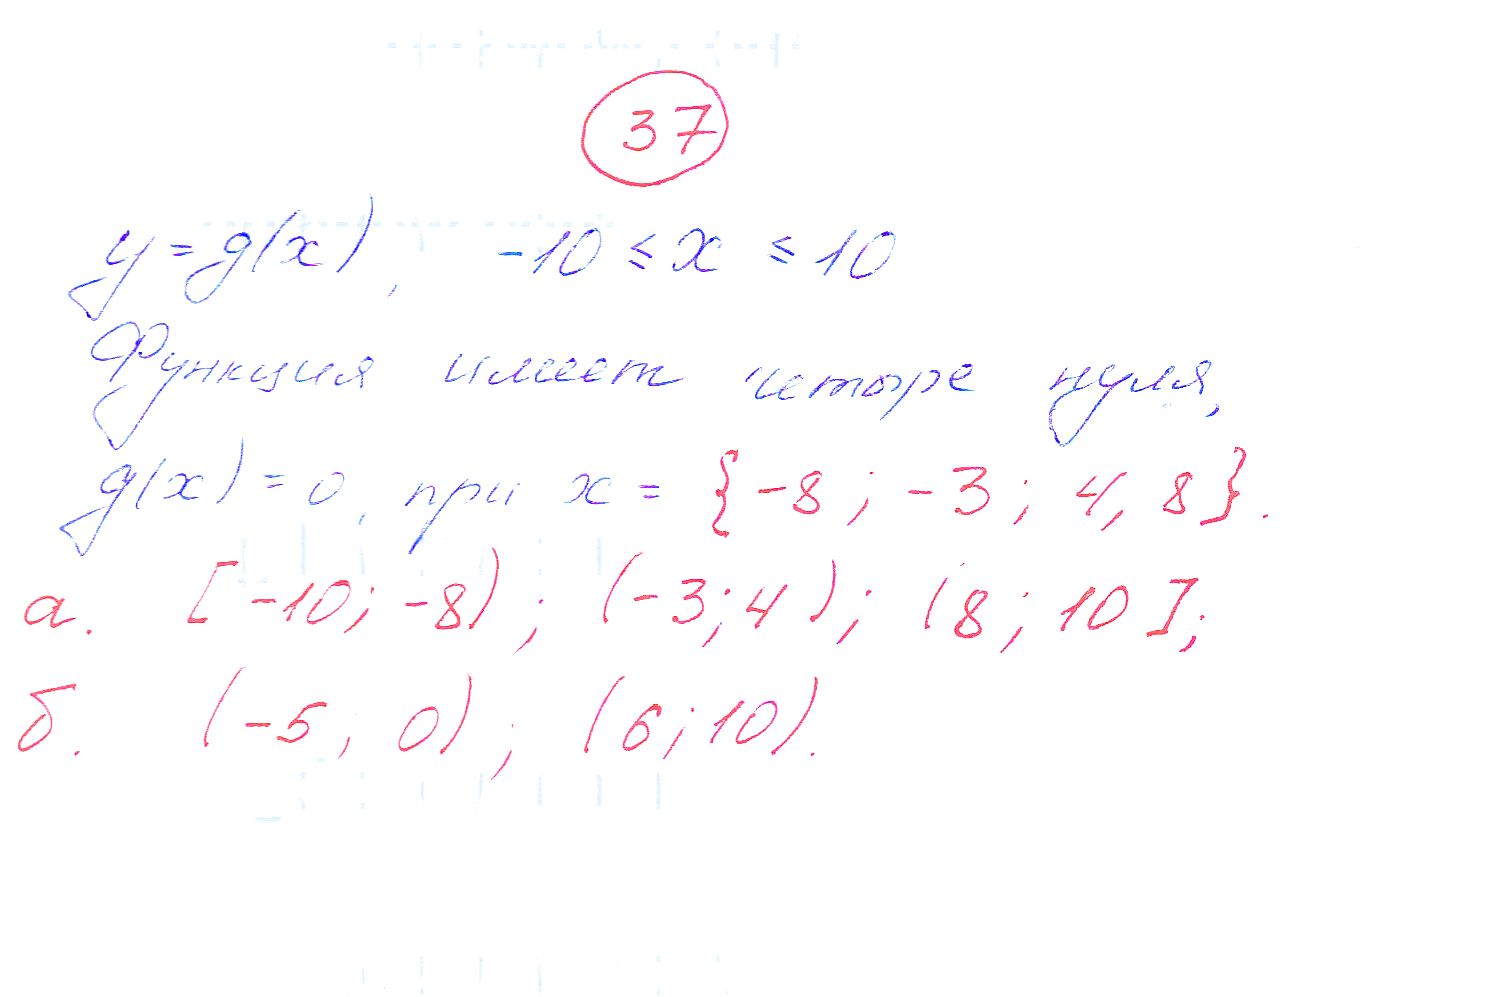 37
y = g(x), -10 ≤ x ≤ 10
Функция имеет четыре нуля,
g(x) = 0, при x = {-8; -3; 4, 8}.
а. [-10; -8); (-3; 4); (8; 10];
б. (-5; 0); (6; 10).